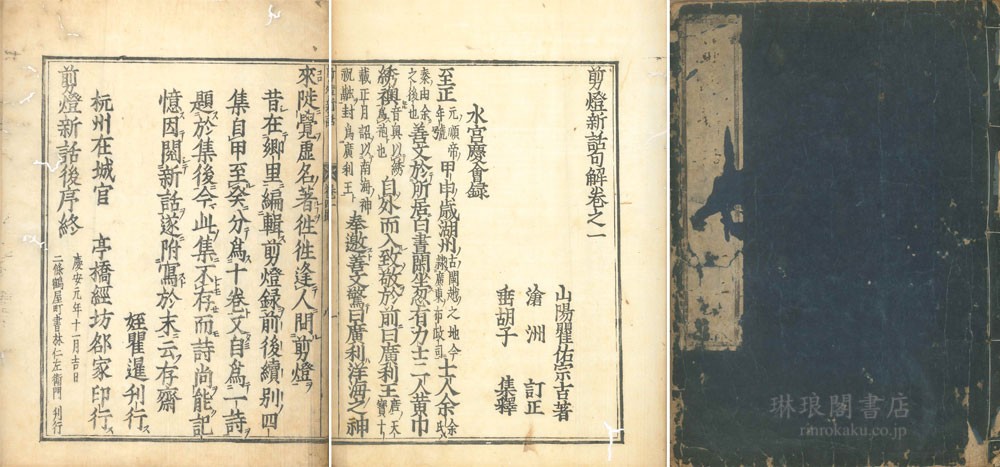 剪燈新話句解卷之一
山陽瞿佑宗吉著
滄洲 訂正
垂胡子 集釋
水宮慶會録
至正元順帝年號甲申歲潮州古閩越之地今隸廣東布政司士人余余氏秦由余之後也善文於所居白晝閑坐忽有力士二人黃巾
綉襖音奧以綉爲袍也自外而入致敬於前曰廣利王唐天寶十載正月詔以南海神祝融封爲廣利王奉邀善文驚曰廣利洋海之神
來陡覺虛名著徃徃逢人問剪燈
昔在鄉里編輯剪燈録前後續別四
集自甲至癸分爲十卷又自爲一詩
題於集後今此集不存而詩尚能記
憶因閲新話遂附寫於末云存齋
姪瞿暹刊行
杭州在城官 亭橋經坊邰家印行
剪燈新話後序終
慶安元年十一月吉日
二條鶴屋町書林仁左衛門 刊行
琳琅閣書店
rinrokaku.co.jp